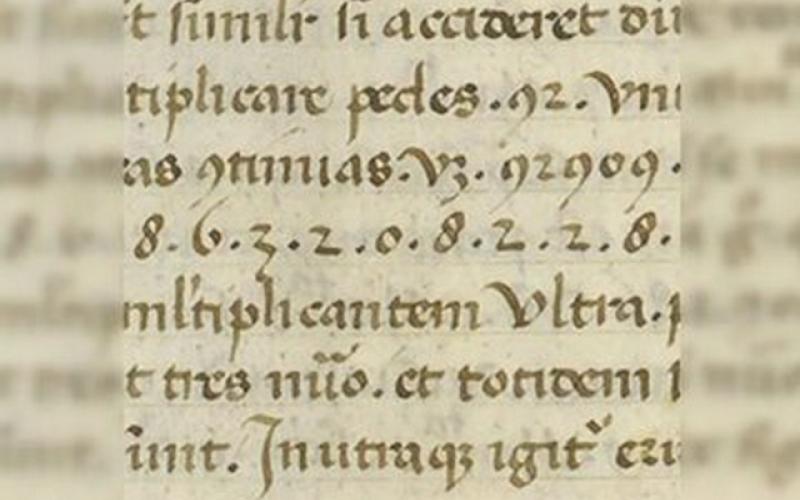 t simil̄r si accideret diu
tiplicare pedes. 92. Vni
as 9tinuas. Vz. 92909.
8. 6. 3. 2. 0. 8. 2. 2. 8.
ml̄tiplicantem Vltra. p
t tres nūo. et totidem
unt. In utraqȝ igit̄ eri